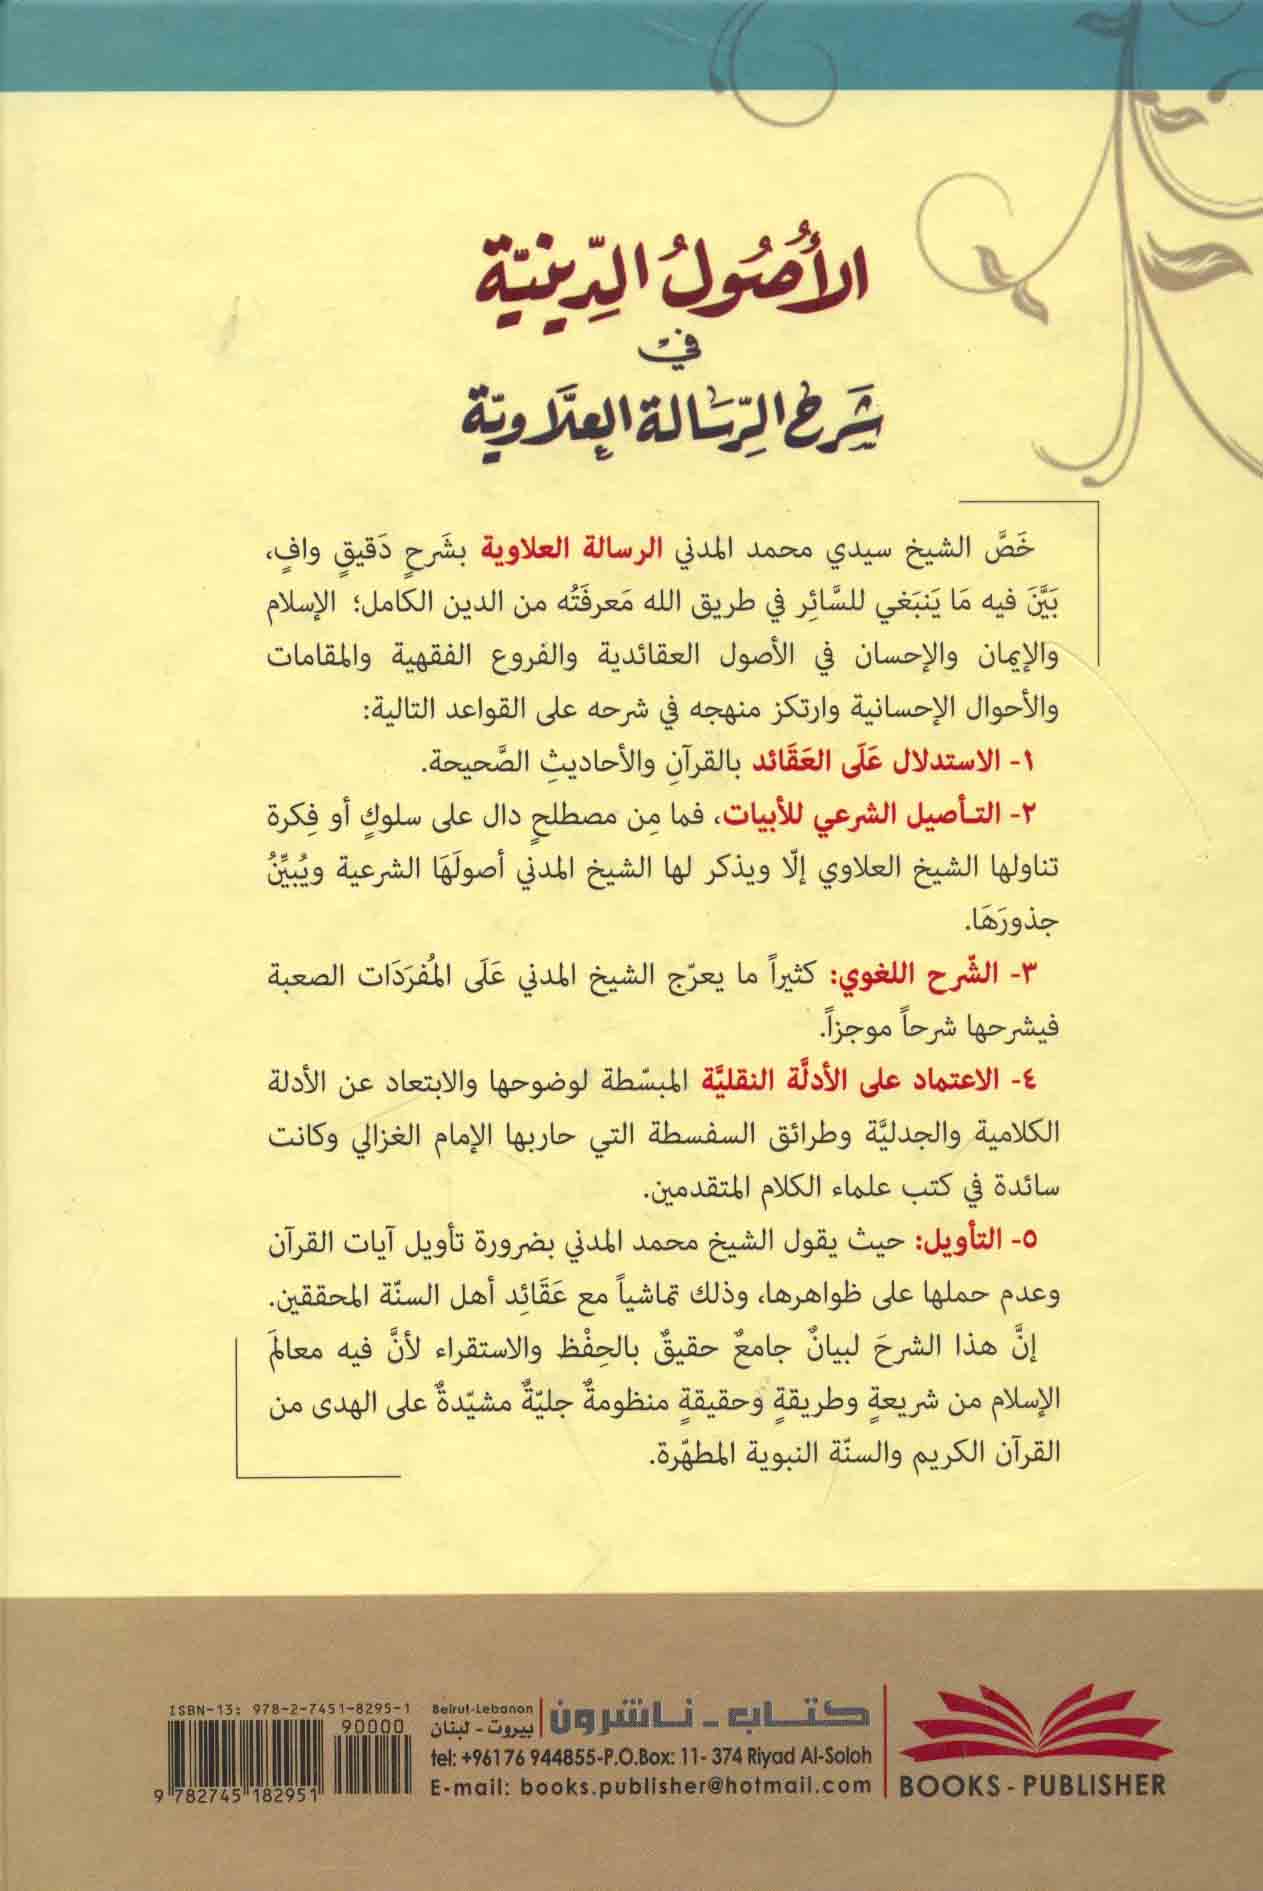 الأُصُولُ الدِّينِيَّة
في
شَرح الرِّسَالة العلَّاويّة
خَصَّ الشيخ سيدي محمد المدني الرسالة العلاوية بشَرحٍ دَقيقٍ وافٍ،
بَيَّنَ فيه مَا يَنبَغي للسَّائِر في طريق الله مَعرفَتُه من الدين الكامل؛ الإسلام
والإيمان والإحسان في الأصول العقائدية والفروع الفقهية والمقامات
والأحوال الإحسانية وارتكز منهجه في شرحه على القواعد التالية:
١- الاستدلال عَلَى العَقَائد بالقرآنِ والأحاديثِ الصَّحيحة.
٢- التأصيل الشرعي للأبيات، فما مِن مصطلحٍ دال على سلوكٍ أو فِكرة
تناولها الشيخ العلاوي إلّا ويذكر لها الشيخ المدني أصولَهَا الشرعية ويُبيِّنُ
جذورَهَا.
٣- الشّرح اللغوي: كثيراً ما يعرّج الشيخ المدني عَلَى المُفرَدَات الصعبة
فيشرحها شرحاً موجزاً.
٤- الاعتماد على الأدلَّة النقليَّة المبسّطة لوضوحها والابتعاد عن الأدلة
الكلامية والجدليَّة وطرائق السفسطة التي حاربها الإمام الغزالي وكانت
سائدة في كتب علماء الكلام المتقدمين.
٥- التأويل: حيث يقول الشيخ محمد المدني بضرورة تأويل آيات القرآن
وعدم حملها على ظواهرها، وذلك تماشياً مع عَقَائِد أهل السنّة المحققين.
إنَّ هذا الشرحَ لبيانٌ جامعٌ حقيقٌ بالحِفْظ والاستقراء لأنَّ فيه معالمَ
الإسلام من شريعةٍ وطريقةٍ وحقيقةٍ منظومةٌ جليّةٌ مشيّدةٌ على الهدى من
القرآن الكريم والسنّة النبوية المطهّرة.
كتاب - ناشرون
Beirut-Lebanon
بيروت - لبنان
tel: +961 76 944855-P.O.Box: 11- 374 Riyad Al-Soloh
E-mail: books.publisher@hotmail.com
BOOKS - PUBLISHER
ISBN-13: 978-2-7451-8295-1
90000
9 782745 182951